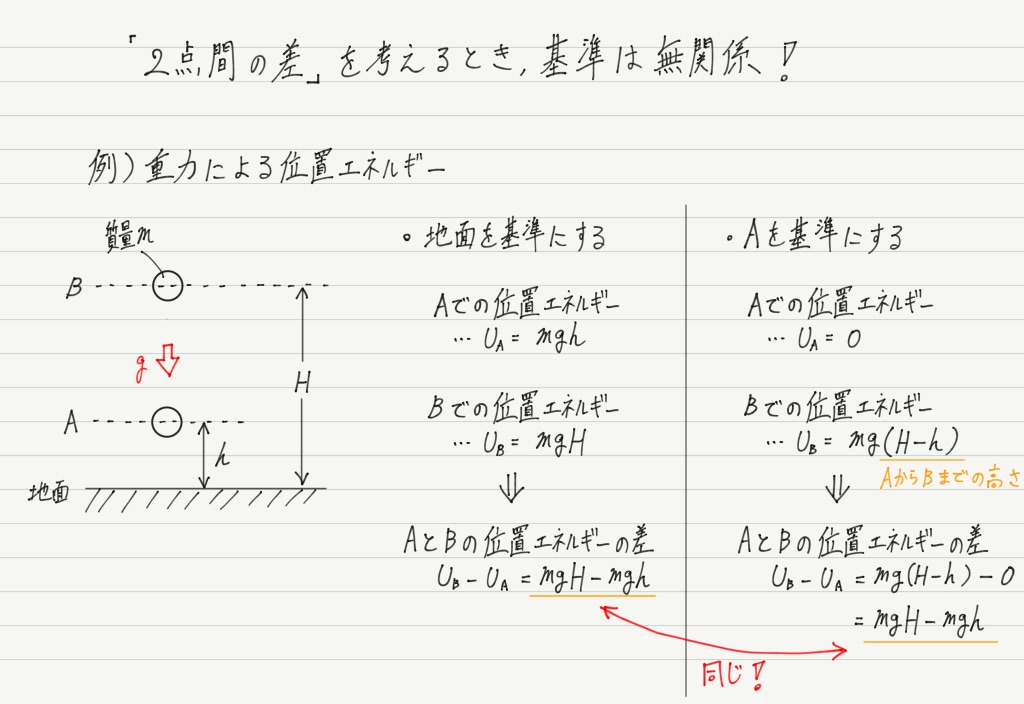 「2点間の差」を考えるとき,基準は無関係!
例)重力による位置エネルギー
質量m
B
g
H
A
h
地面
・地面を基準にする
Aでの位置エネルギー
… U_A = mgh
Bでの位置エネルギー
… U_B = mgH
⇓
AとBの位置エネルギーの差
U_B - U_A = mgH - mgh
・Aを基準にする
Aでの位置エネルギー
… U_A = 0
Bでの位置エネルギー
… U_B = mg(H-h)
AからBまでの高さ
⇓
AとBの位置エネルギーの差
U_B - U_A = mg(H-h) - 0
= mgH - mgh
同じ!